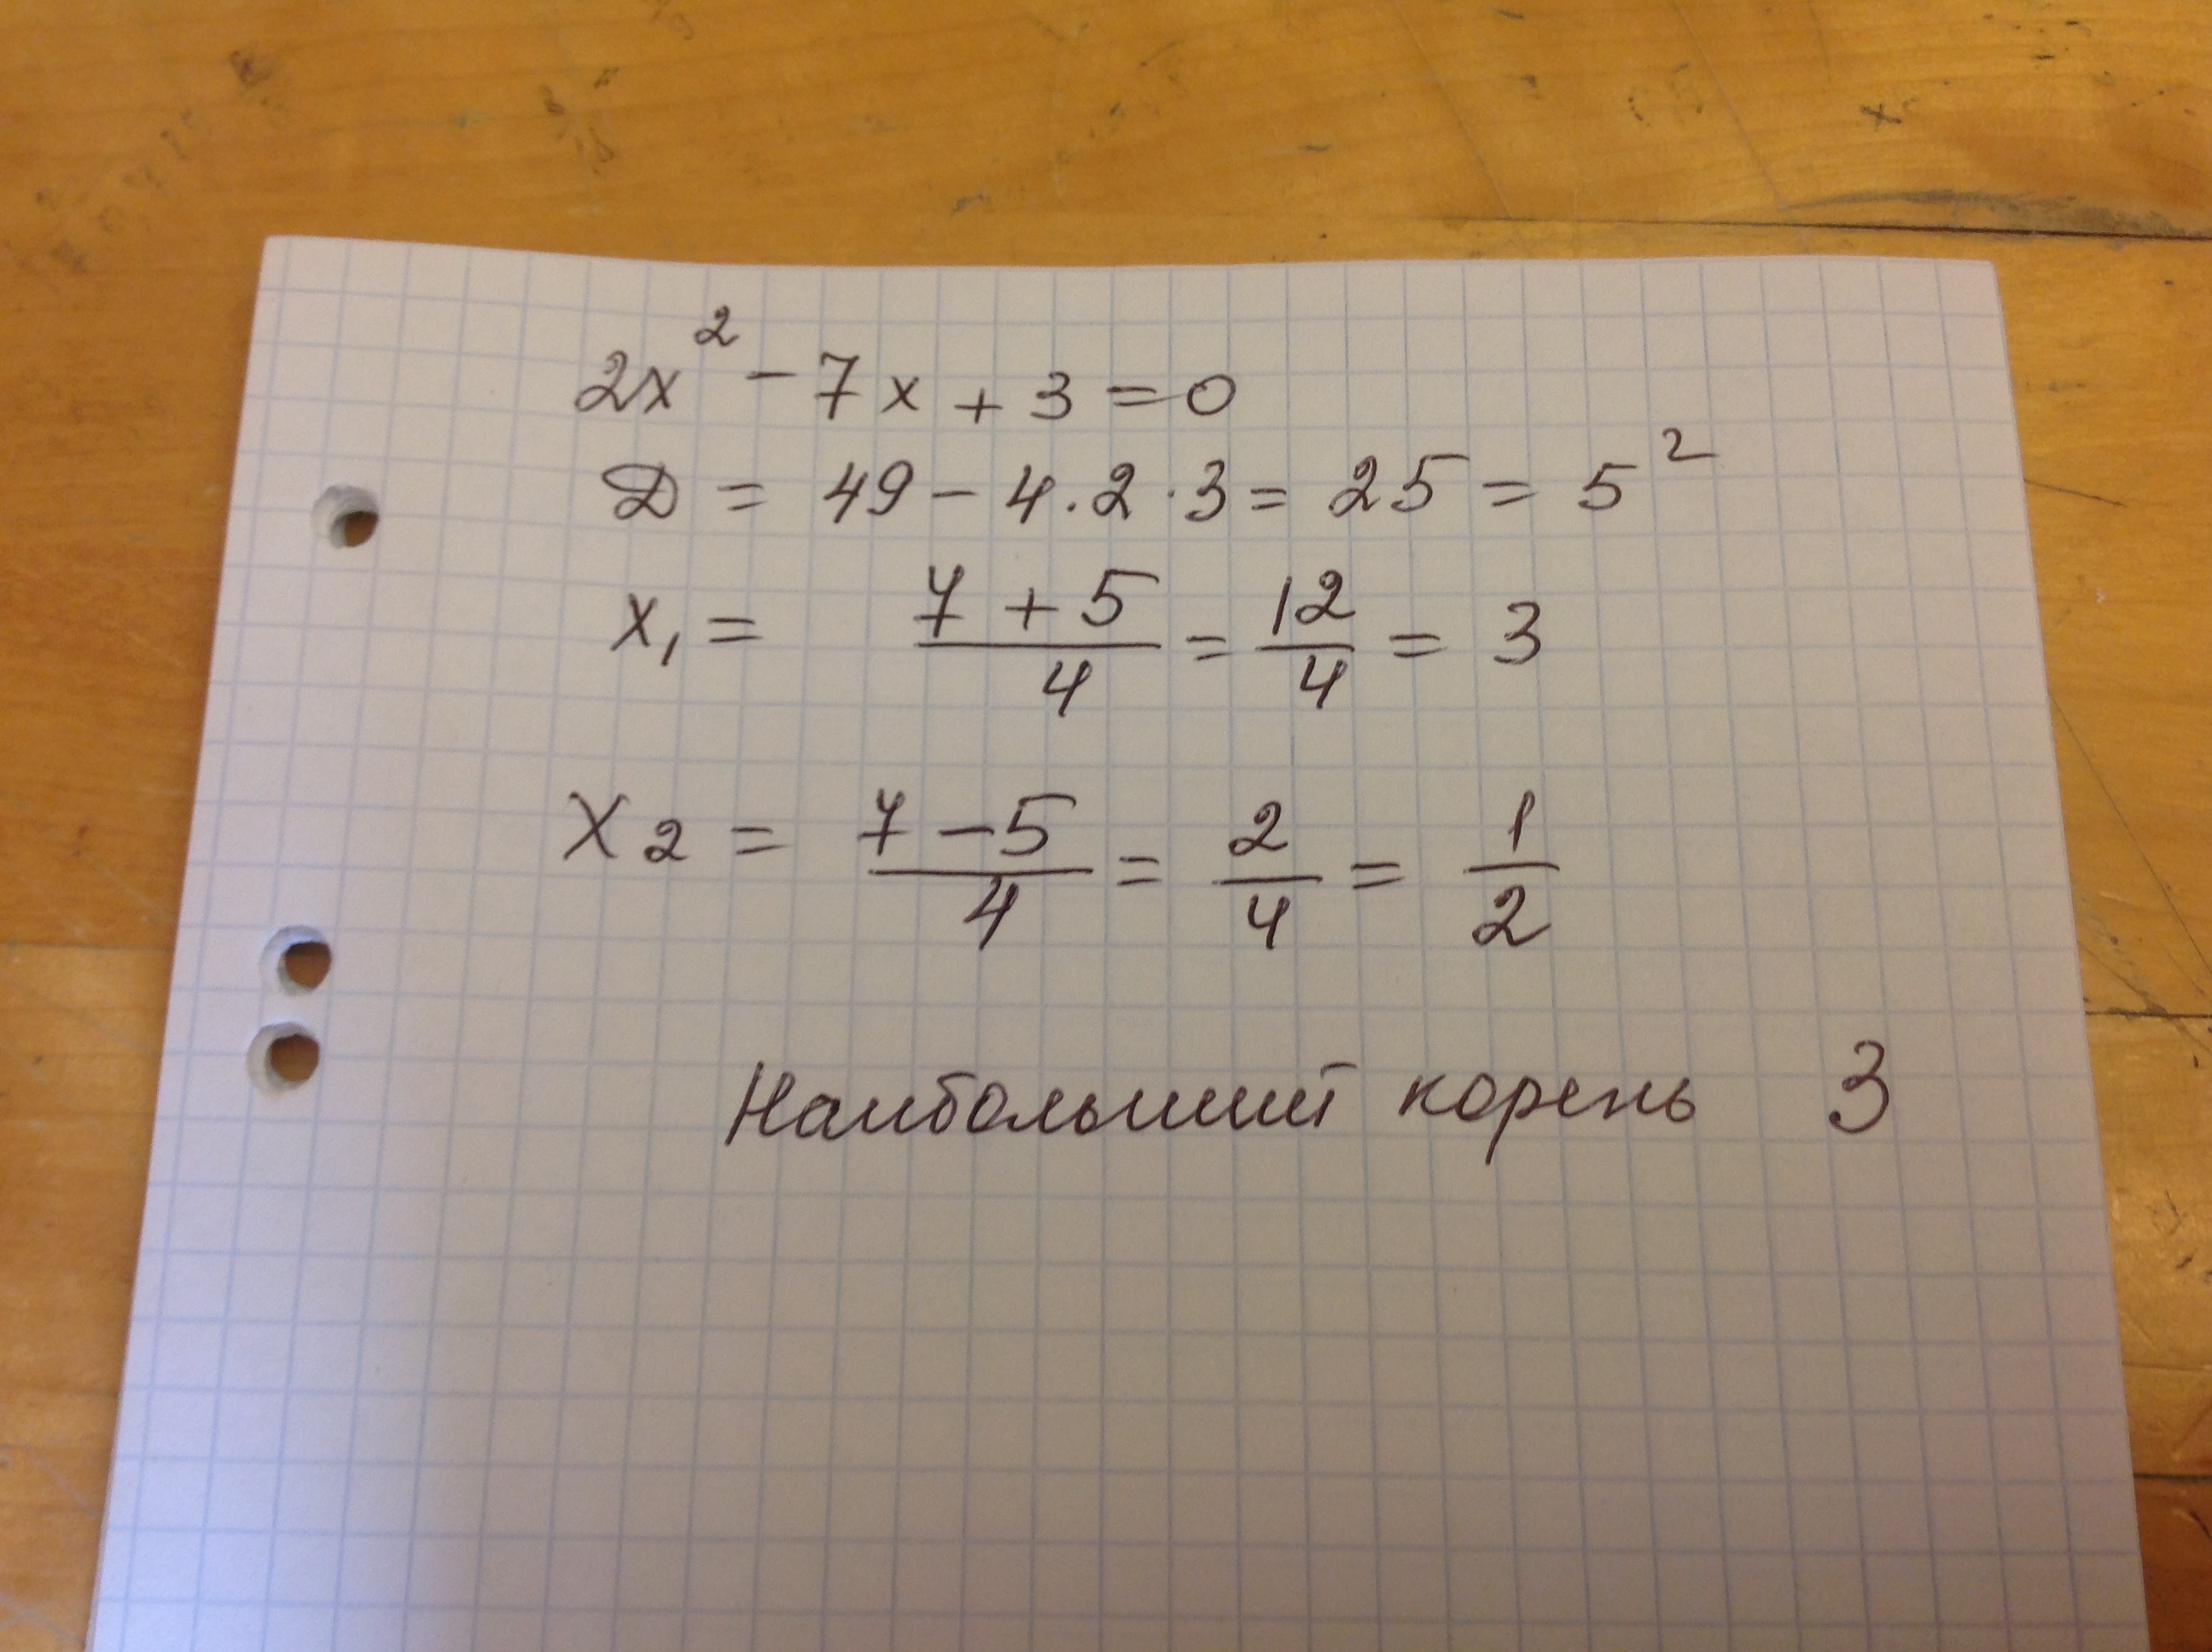 2x² - 7x + 3 = 0
D = 49 - 4·2·3 = 25 = 5²
x₁ = (7 + 5)/4 = 12/4 = 3
x₂ = (7 - 5)/4 = 2/4 = 1/2
Наибольший корень 3